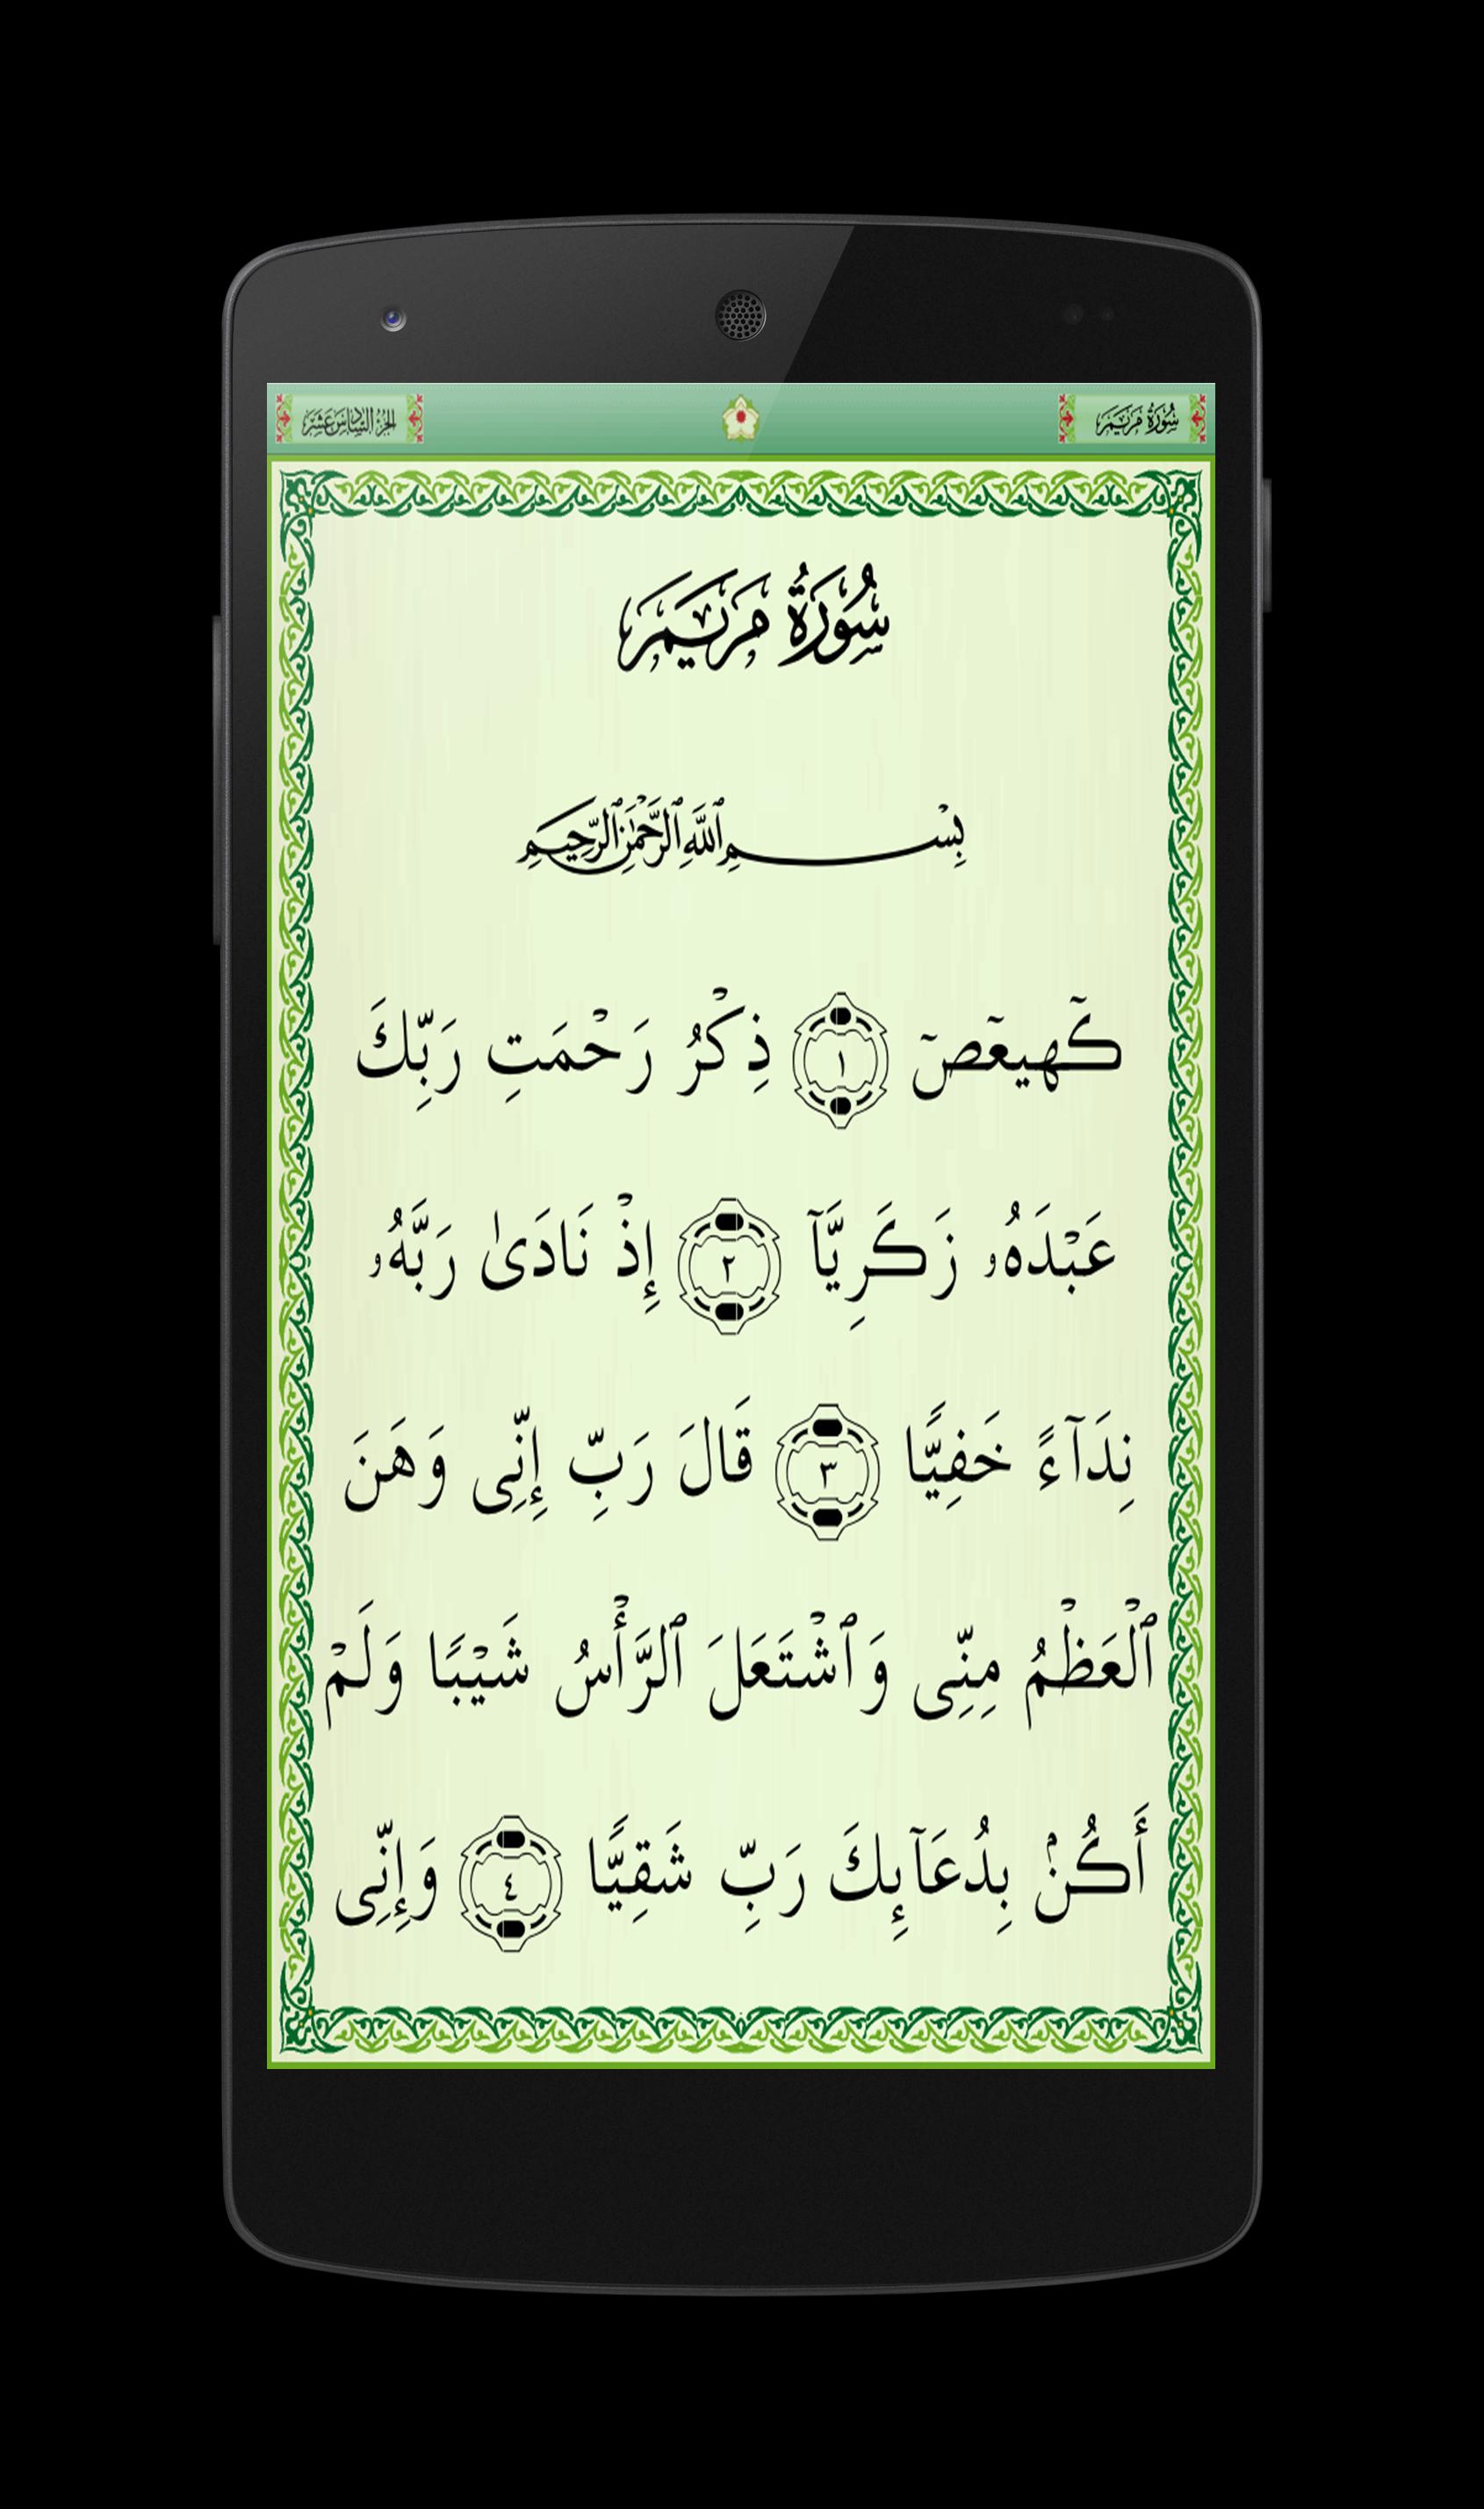 سُورَةُ مَرْيَمَ
الجُزْءُ السَّادِسَ عَشَرَ
سُورَةُ مَرْيَمَ
بِسْمِ ٱللَّهِ ٱلرَّحْمَٰنِ ٱلرَّحِيمِ
كٓهيعٓصٓ ١ ذِكْرُ رَحْمَتِ رَبِّكَ
عَبْدَهُۥ زَكَرِيَّآ ٢ إِذْ نَادَىٰ رَبَّهُۥ
نِدَآءً خَفِيًّا ٣ قَالَ رَبِّ إِنِّى وَهَنَ
ٱلْعَظْمُ مِنِّى وَٱشْتَعَلَ ٱلرَّأْسُ شَيْبًا وَلَمْ
أَكُنۢ بِدُعَآئِكَ رَبِّ شَقِيًّا ٤ وَإِنِّى